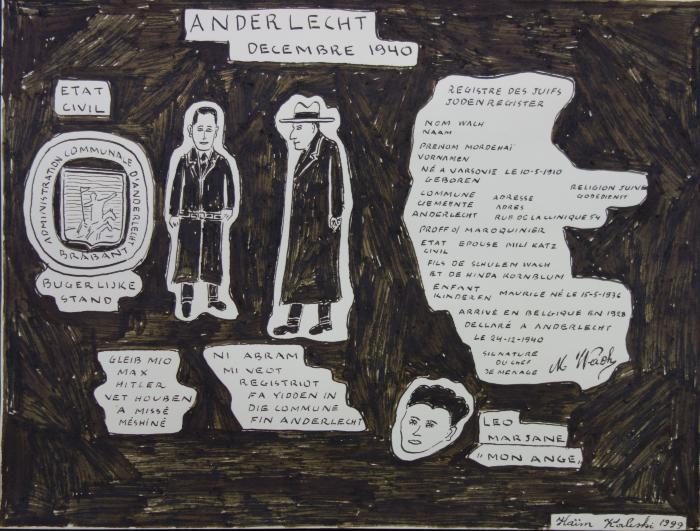 ANDERLECHT
DECEMBRE 1940
ETAT
CIVIL
ADMINISTRATION COMMUNALE D'ANDERLECHT
BRABANT
BUGERLIJKE
STAND
REGISTRE DES JUIFS
JODENREGISTER
NOM WACH
NAAM
PRENOM MORDEHAÏ
VORNAMEN
NÉ A VARSOVIE LE 10-5-1910
GEBOREN
RELIGION JUIVE
GODSDIENST
COMMUNE ADRESSE
GEMEENTE ADRES
ANDERLECHT RUE DE LA CLINIQUE 54
PROFF O/ MAROQUINIER
ETAT EPOUSE MILI KATZ
CIVIL
FILS DE SCHULEM WACH
ET DE HINDA KORNBLUM
ENFANT
KINDEREN MAURICE NÉ LE 15-5-1936
ARRIVÉ EN BELGIQUE EN 1928
DECLARÉ A ANDERLECHT
LE 24-12-1940
SIGNATURE
DU CHEF
DE MENAGE
M Wach
GLEIB MIO
MAX
HITLER
VET HOUBEN
A MISSÉ
MÉSHINÉ
NI ABRAM
MI VEOT
REGISTRIOT
FA YIDDEN IN
DIE COMMUNE
FIN ANDERLECHT
LEO
MARJANE
"MON ANGE"
Kaïm Kaliski